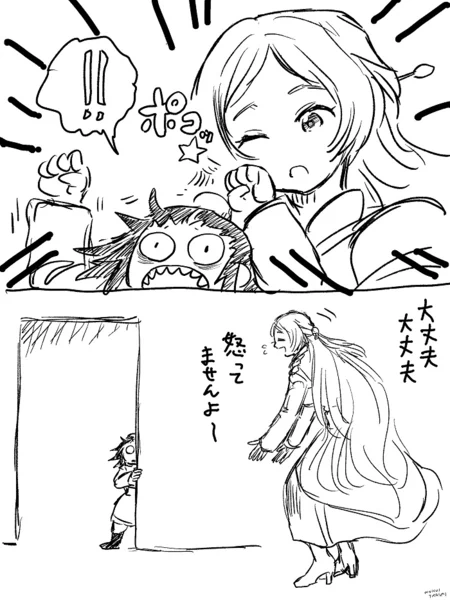 !!
ポコッ
大丈夫
大丈夫
怒って
ませんよ〜